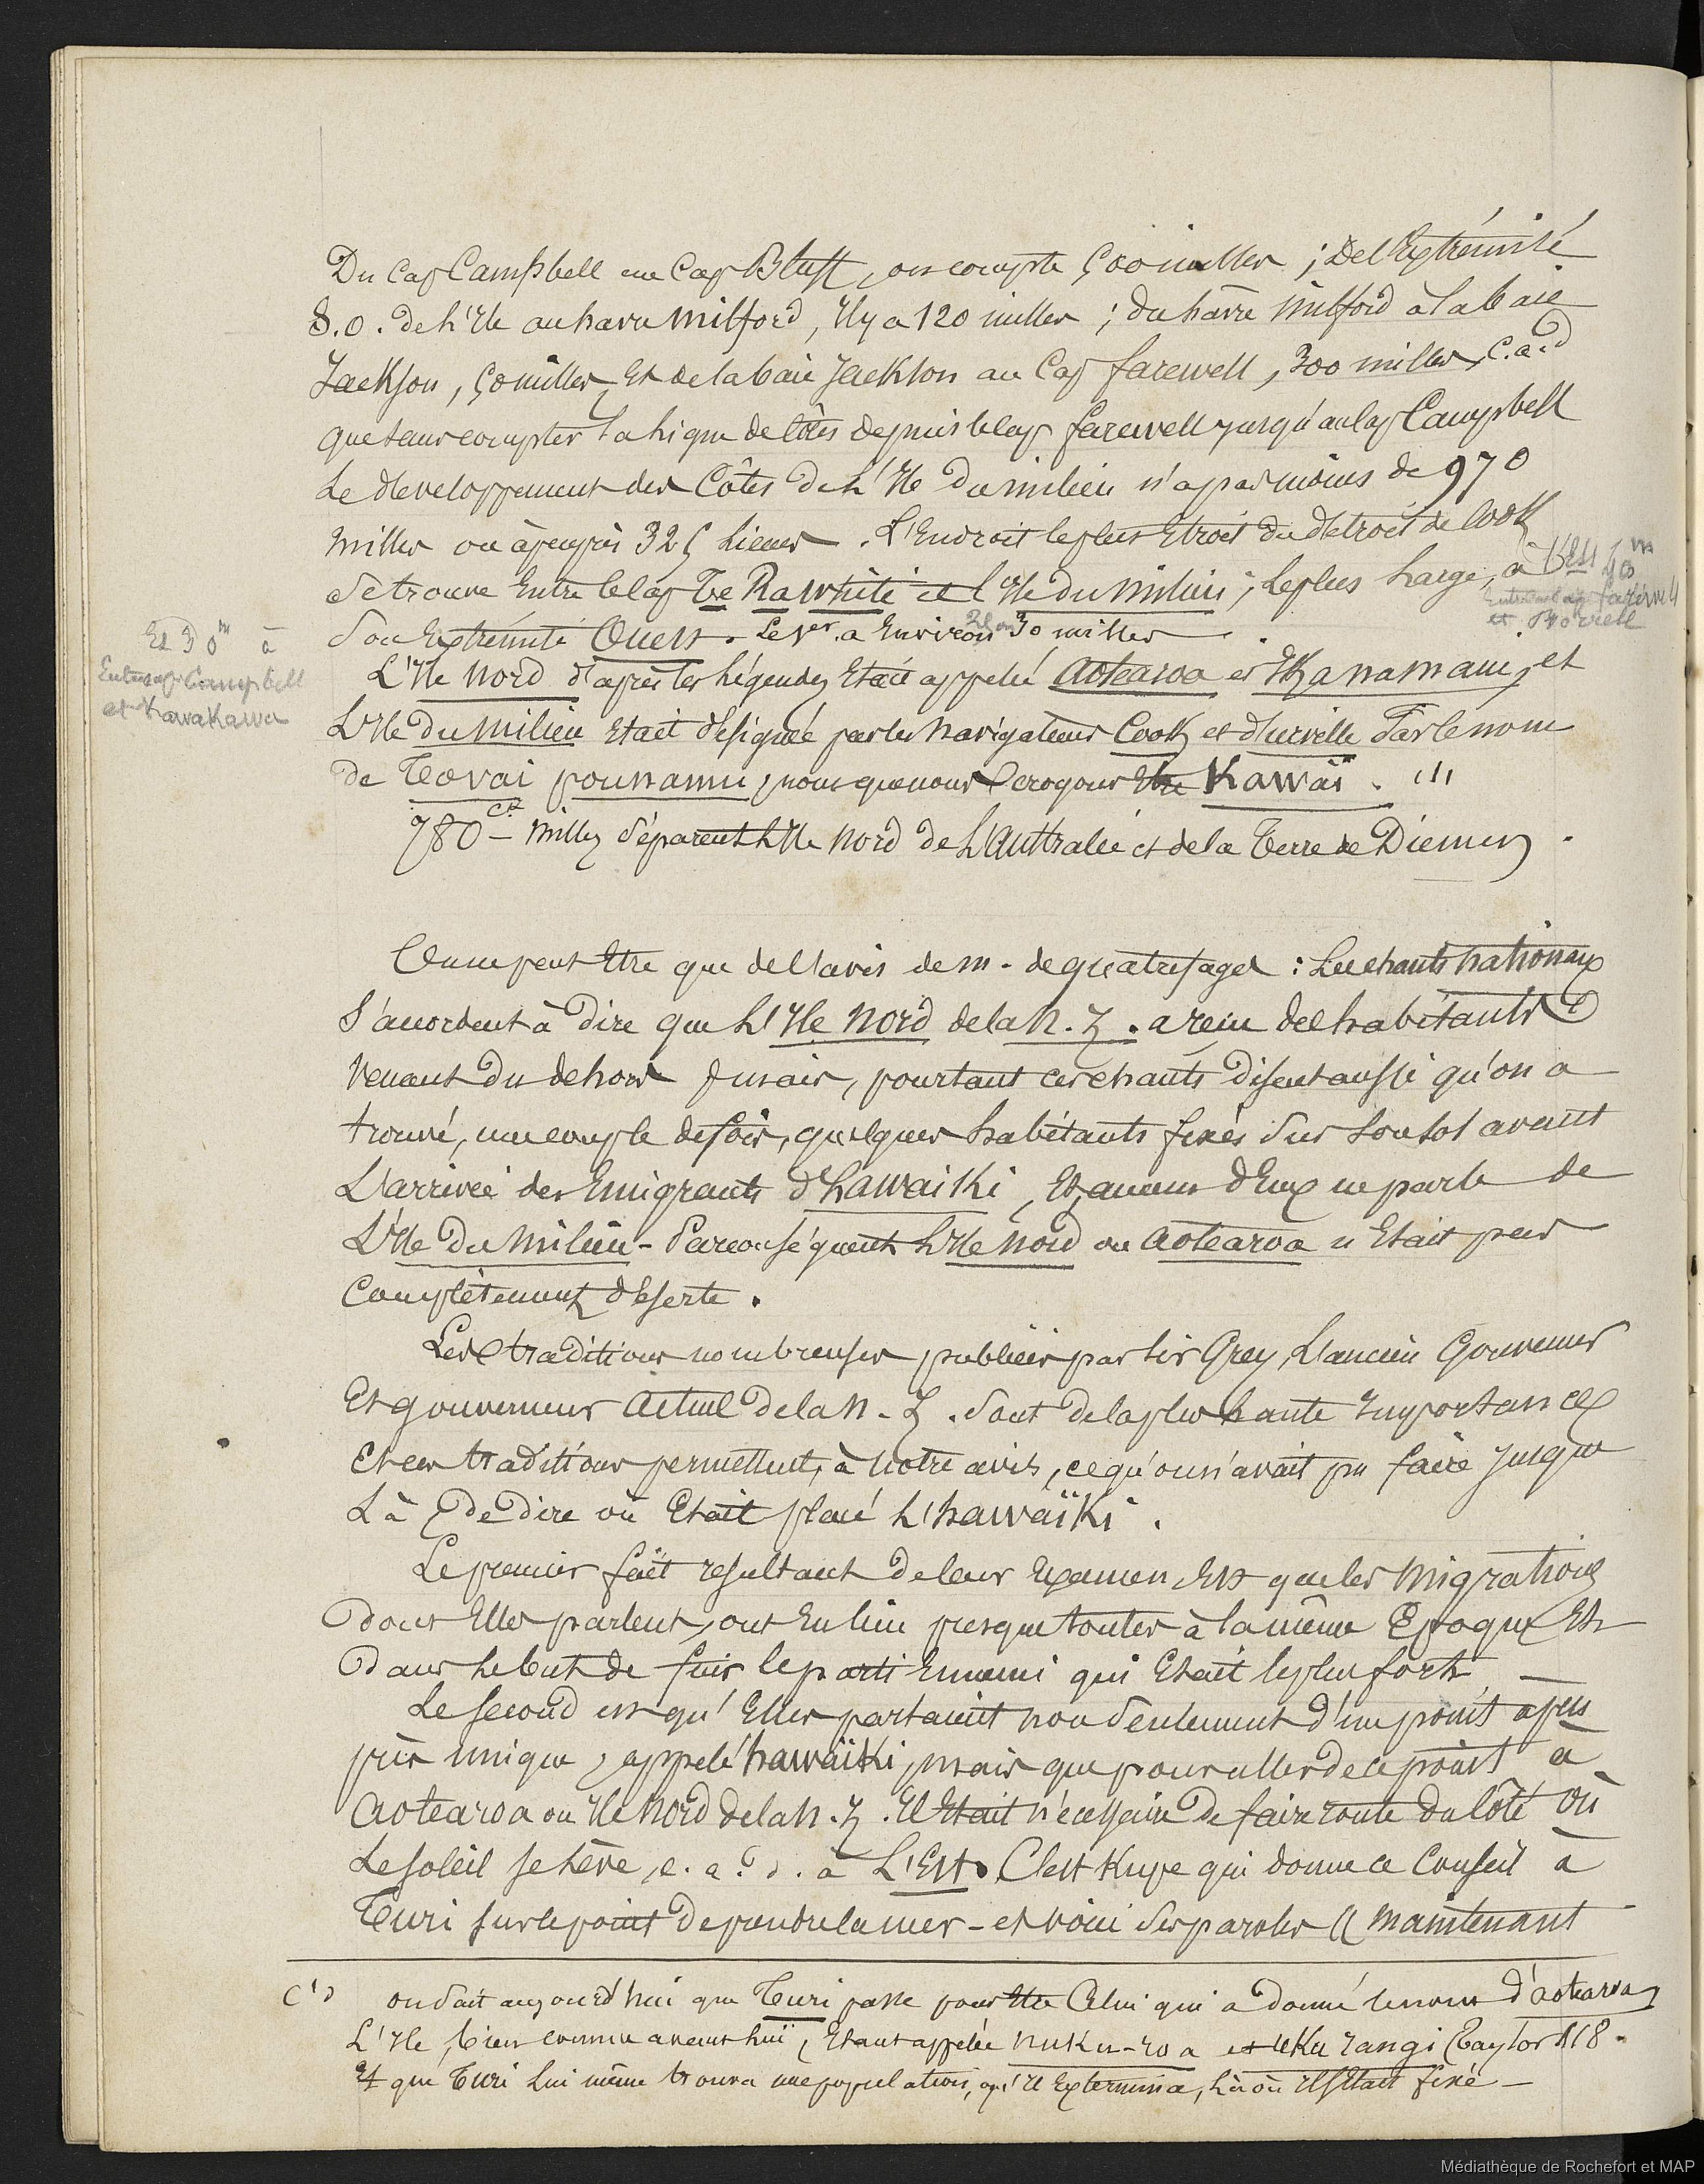 Du Cap Campbell au Cap Bluff, on compte 500 milles ; de l'Extrémité
S.O. de l'Ile au havre Milford, Il y a 120 milles ; du hâvre Milford à la baie
Jackson, 50 milles, Et de la baie Jackson au Cap farewell, 300 milles, c.a.d
que sans compter la ligne de côtes depuis le Cap farewell jusqu'au Cap Campbell
Le developpement des Côtes de L'Ile du milieu n'a pas moins de 970
milles ou à peu près 325 Lieues. L'Endroit le plus Etroit du détroit de Cook
se trouve Entre le Cap Te Rawhiti et l'Ile du Milieu ; le plus large, à
Entre le Cap farewell
et
son Extrémité Ouest. Le 1er a Environ 30 milles.
Et 30 m à
Entre Cap Campbell
et Kawakawa
L'Ile Nord d'après les légendes Etait appelée Aotearoa et Ikanamaui, et
L'Ile du Milieu Etait désignée par les navigateurs Cook et d'Urville Par le nom
de Tavai pounamu, nous que nous croyons Etre Kawai. (1)
780 milles séparent L'Ile Nord de L'Australie et de la Terre de Diemen.
On ne peut Etre que de l'avis de m. de quatrefages : Les chants nationaux
S'accordent à dire que L'Ile Nord de la N.Z. a reçu des habitants
Venant du dehors Mais, pourtant ces chants disent aussi qu'on a
trouvé, une couple de fois, quelques habitants fixés sur son sol avant
L'arrivée des Emigrants d'hawaiki, Et aucun d'Eux ne parle de
L'Ile du Milieu - Par conséquent L'Ile Nord ou Aotearoa n'Etait pas
Complètement déserte.
Les traditions nombreuses publiées par Sir Grey, L'ancien Gouverneur
Et gouverneur Actuel de la N.Z. sont de la plus haute Importance
Et ces traditions permettent, à notre avis, ce qu'on n'avait pu faire jusque
Là, de dire où Etait placé L'hawaïki.
Le premier fait resultant de leur Examen Est que les Migrations
dont Elles parlent, ont Eu lieu presque toutes à la même Epoque Et
Dans le but de fuir le parti Ennemi qui Etait le plus fort
Le second est qu'Elles partaient non seulement d'un point à peu
près unique, appelé hawaïki, mais que pour aller de ce point à
Aotearoa ou Ile Nord de la N.Z. Il Etait nécessaire de faire route du côté où
Le soleil se lève, c.a.d. à L'Est. C'est Kupe qui donne ce Conseil à
Turi sur le point de prendre la mer - et voici ses paroles (( maintenant
(1) on sait aujourd'hui que Turi passe pour Etre Celui qui a donné le nom d'aotearoa,
L'Ile, bien connue avant lui, Etant appelée nuku-roa et uku rangi (Taylor 118.
et que Turi lui même trouva une population, qu'Il Extermina, là où Il s'Etait fixé -
Médiathèque de Rochefort et MAP